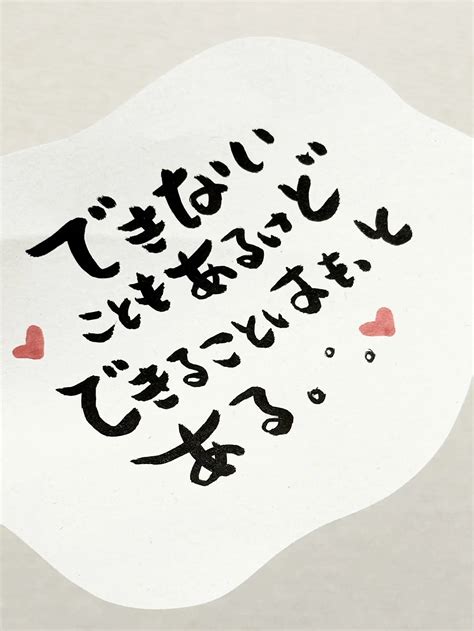 できない
こともあるけど
できることはもっと
ある...